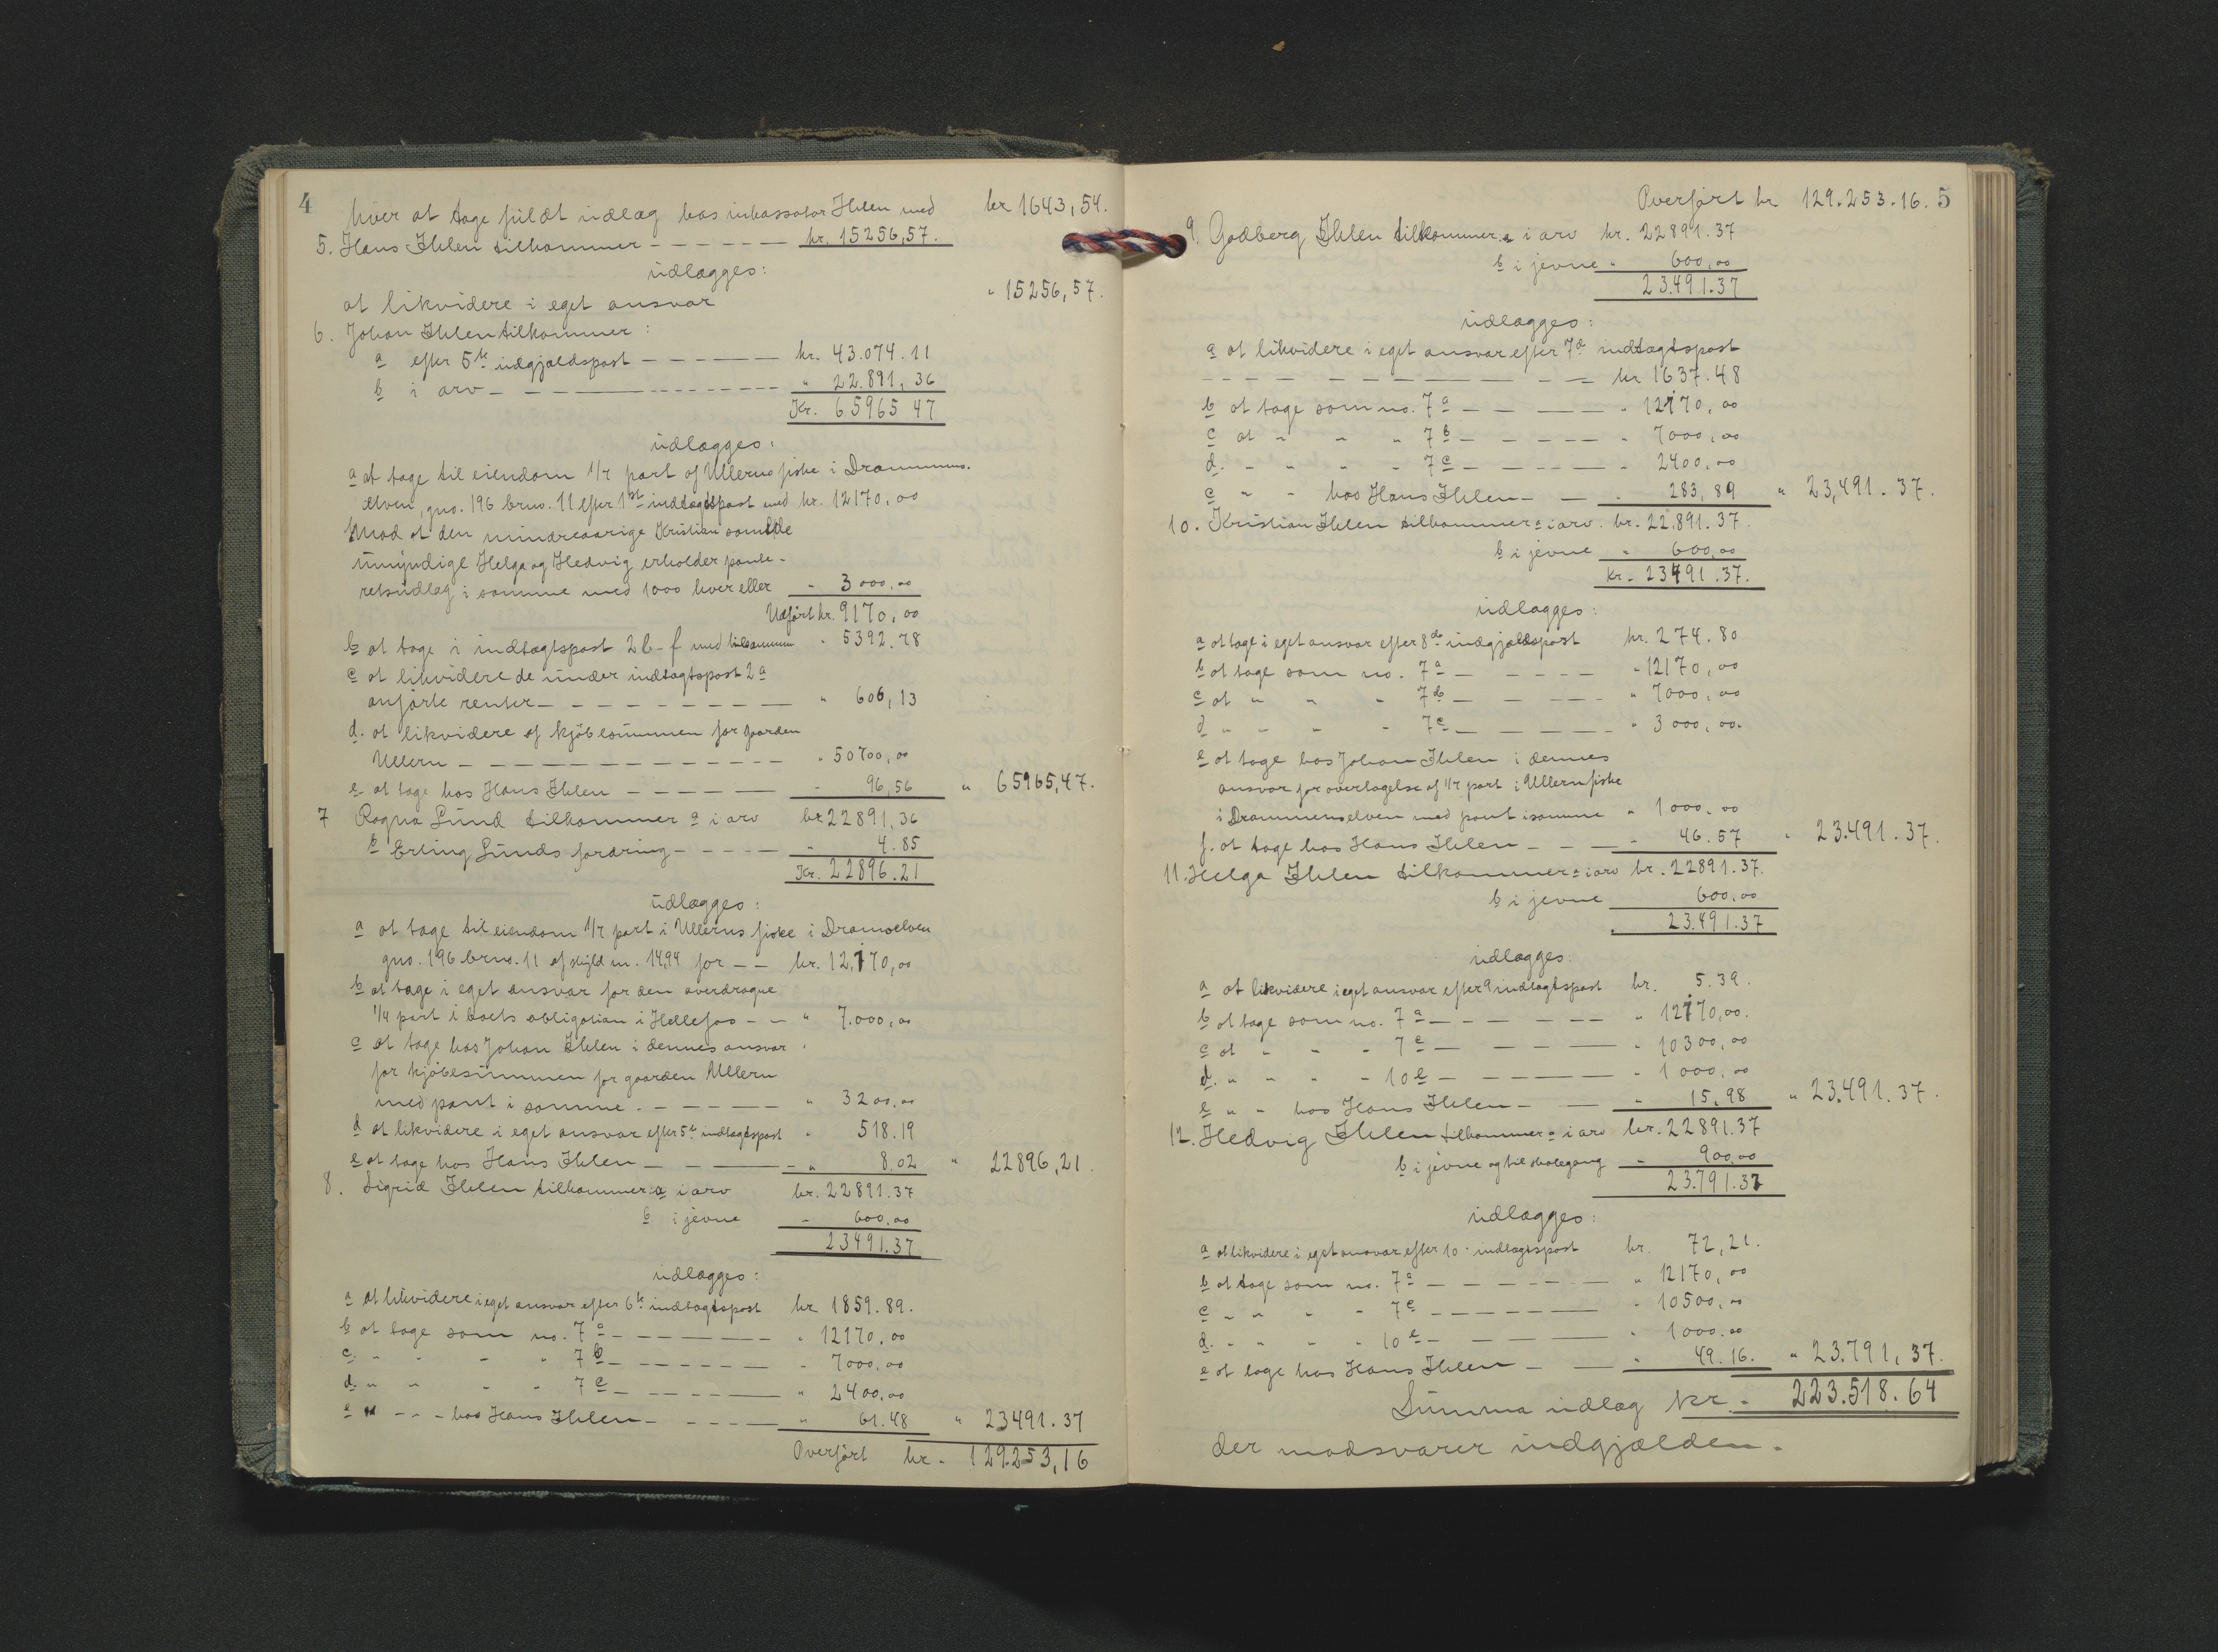 4
hver at tage fuldt udlæg hos inkassator Ihlen med kr 1643,54.
5. Hans Ihlen tilkommer - - - - - - kr. 15256,57.
udlægges:
at likvidere i eget ansvar " 15256,57.
6. Johan Ihlen tilkommer:
a efter 5te udgjældspost - - - - - kr. 43.074.11
b i arv - - - - - - - - " 22.891,36
Kr. 65965 47
udlægges:
a at tage til eiendom 1/7 part af Ullerns fiske i Drammens-
elven, gno. 196 brno. 11 efter 1st indtægtspost med kr. 12170,00
Mod at den mindreaarige Kristian samt de
umyndige Helga og Hedvig erholder pante-
retsudlæg i samme med 1000 hver eller - 3000,00
Udført kr. 9170,00
b at tage i indtægtspost 2 b-f med tilsammen " 5392.78
c at likvidere de under indtægtspost 2a
anførte renter - - - - - - - - " 606,13
d. at likvidere af kjøbesummen for gaarden
Ullern - - - - - - - - - - " 50700,00
e at tage hos Hans Ihlen - - - - - - 96,56 " 65965,47.
7 Ragna Lund tilkommer a i arv kr 22891,36
b Erling Lunds fordring - - - - - 4.85
Kr. 22896.21
udlægges:
a at tage til eiendom 1/7 part i Ullerns fiske i Dramselven
gno. 196 brno. 11 af skyld m. 14,94 for - - kr. 12,170,00
b at tage i eget ansvar for den overdragne
1/4 part i boets obligation i Hellefos - - " 7.000,00
c at tage hos Johan Ihlen i dennes ansvar
for kjøbesummen for gaarden Ullern
med pant i samme. - - - - - " 3200,00
d at likvidere i eget ansvar efter 5te indtægtspost " 518.19
e at tage hos Hans Ihlen - - - - - " 8,02 " 22896,21.
8. Sigrid Ihlen tilkommer a i arv kr. 22891.37
b i jevne - 600,00
23491.37
udlægges:
a at likvidere i eget ansvar efter 6te indtægtspost kr 1859.89.
b at tage som no. 7a - - - - - - " 12170.00
c. " " " " 7b - - - - - - - 7000,00
d " " " " 7c - - - - - - " 2400,00
e " - - - hos Hans Ihlen - - - - - " 61.48 " 23491.37
Overført kr - 129253,16
Overført kr 129.253.16. 5
9. Godberg Ihlen tilkommer a i arv kr. 22891.37
b i jevne " 600,00
23.491.37
udlægges:
a at likvidere i eget ansvar efter 7de indtægtspost
- - - - - - - - - - - kr 1637.48
b at tage som no. 7a - - - - - " 12170,00
c at " " " 7b - - - - - " 7000,00
d. " " " " 7c - - - - - " 2400,00
e " " hos Hans Ihlen - - - " 283,89 " 23,491.37.
10. Kristian Ihlen tilkommer a i arv. kr. 22.891.37.
b i jevne " 600,00
Kr - 23491.37.
udlægges:
a at tage i eget ansvar efter 8de indgjældspost kr. 274.80
b at tage som no. 7a - - - - - - " 12170,00
c at " " " 7b - - - - - " 7000,00
d " " " " 7c - - - - - - " 3000,00.
e at tage hos Johan Ihlen i dennes
ansvar for overtagelse af 1/7 part i Ullernfiske
i Drammenselven med pant i samme " 1000,00
f. at tage hos Hans Ihlen - - - - 46.57 " 23.491.37.
11. Helga Ihlen tilkommer a i arv kr. 22891.37.
b i jevne 600.00
23.491.37
udlægges:
a at likvidere i eget ansvar efter 9 indtægtspost kr. 5.39.
b at tage som no. 7a - - - - - - " 12170,00.
c at " " " 7c - - - - - " 10300,00
d. " " " " 10e - - - - - " 1000,00
e " " hos Hans Ihlen - - - " 15,98 " 23.491.37.
12. Hedvig Ihlen tilkommer a i arv kr. 22891.37
b i jevne og til skolegang - 900,00
23.791.37
udlægges:
a at likvidere i eget ansvar efter 10. indtægtspost kr. 72,21.
b at tage som no. 7a - - - - - - " 12170,00
c " " " " 7c - - - - - - " 10500,00
d. " " " " 10e - - - - - " 1000.00
e at tage hos Hans Ihlen - - - " 49.16. " 23.791,37.
Summa udlæg kr. - 223.518.64
der modsvarer indgjælden.